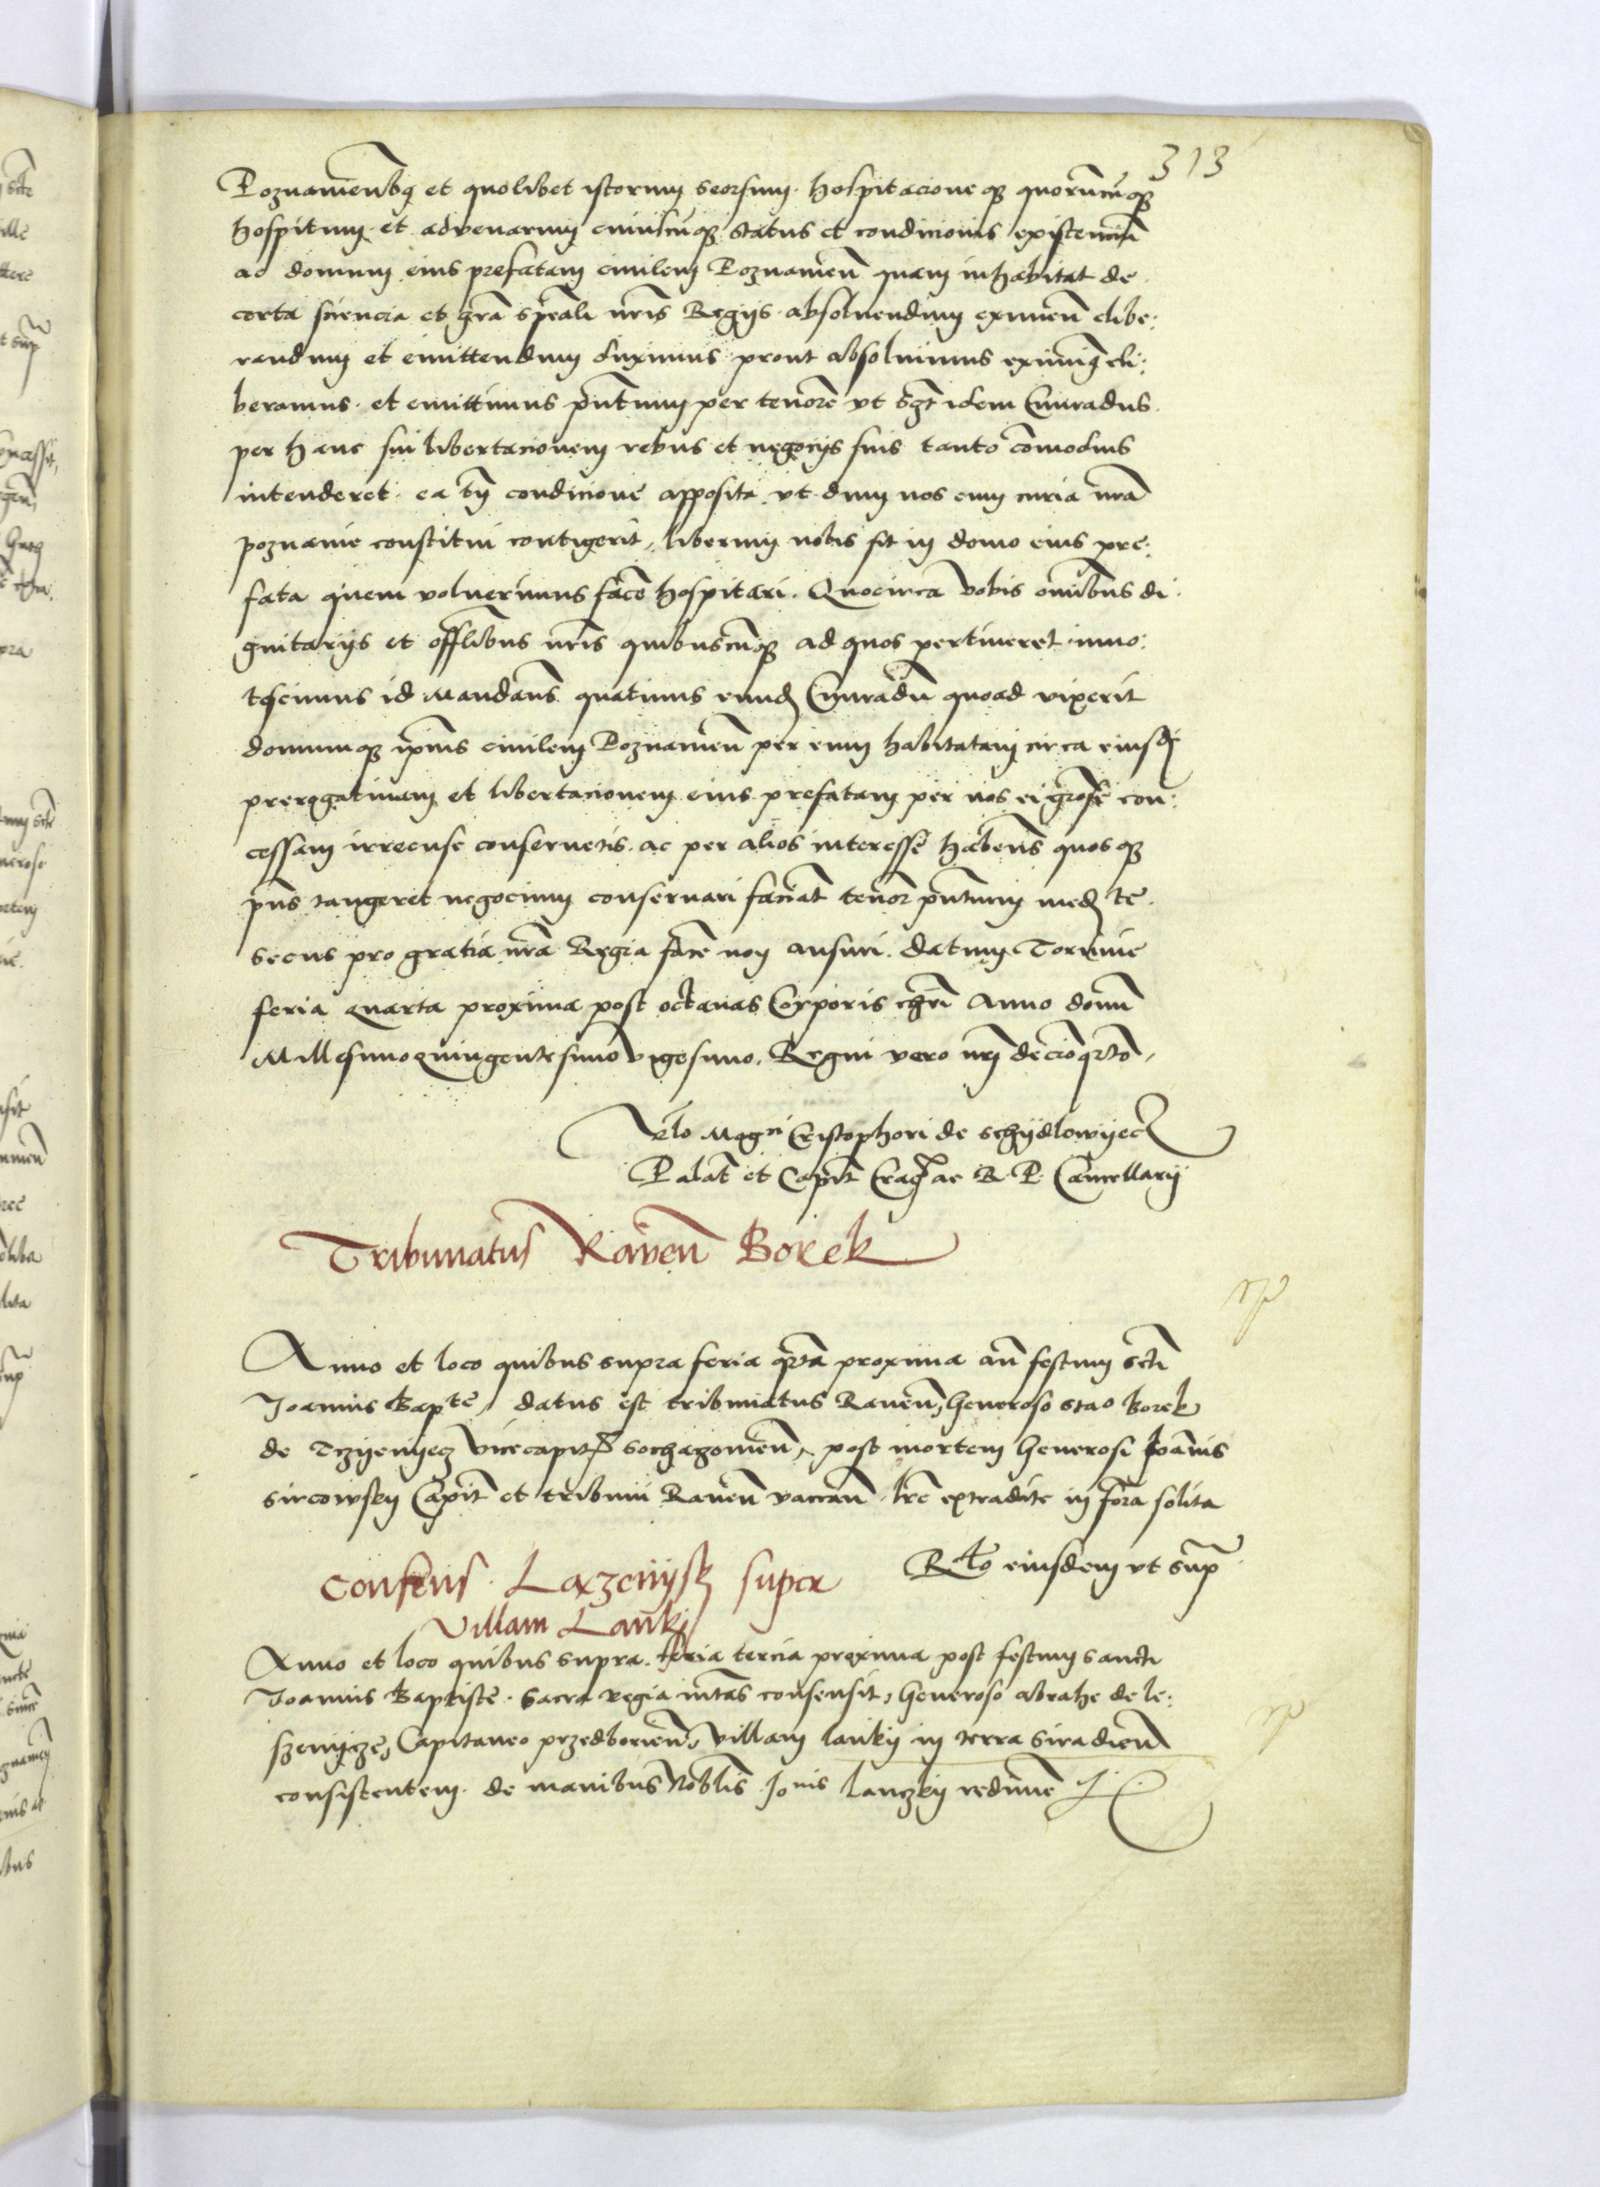 313
Poznanienibus et quolibet istorum seorsum hospitacioneque quorumcumque
hospitum et advenarum cuiuscumque status et condicionis existenciu
ac domum eius prefatam civilem Poznanien quam inhabitat de
certa sciencia et gra speciali nris Regiis absolvendum eximen elibe:
randum et emittendum duximus prout absolvimus eximimus eli:
beramus et emittimus pntium per tenore ut idem Cunradus
per hanc sui libertacionem rebus et negociis suis tanto comodius
intenderet ea tn condicione apposita ut dum nos cum curia nra
poznanie constitui contigerit, liberum nobis sit in domo eius pre:
fata quem voluerimus face hospitari. Quocirca vobis omnibus di
gnitariis et offlibus nris quibuscumque ad quos pertineret inno:
tescimus id mandans quatinus eund Cunradum quoad vixerit
domumque ipius civilem Poznanien per eum habitatam circa eiusdi
prerogativam et libertacionem eius prefatam per nos ei grose con:
cessam irrecuse conservetis ac per alios interesse habens quosque
pns tangeret negocium conservari faciat tenor pntium med te
secus pro gratia nra Regia face non ausuri. datum Torunie
feria quarta proxima post octavas Corporis chri Anno domi
Millesimo quingentesimo vigesimo. Regni vero nri decioqrto,
Rlo Magci Cristophori de Schydlowyecz
Palat et Capit Crac ac R. P. Cancellarii
Tribunatus Raven Borek
Anno et loco quibus supra feria qrta proxima an festum scti
Joannis Bapte, datus est tribunatus Raven, Generoso Stao Borek
de Trzyenyecz vicecapit Sochazovien, post mortem Generosi Joannis
Sircowsky Capit et tribuni Raven vacan. lre extradite in fora solita
Rlo eiusdem ut sup
Consens Laxzenysk super
Villam Lanky
Anno et loco quibus supra. feria tercia proxima post festum sancti
Joannis Baptiste. Sacra regia mtas consensit, Generoso Abrahe de le:
szenycze, Capitaneo przedborien, villam lanky in terra Siradien
consistentem de manibus Noblis Jonis lanczky redime